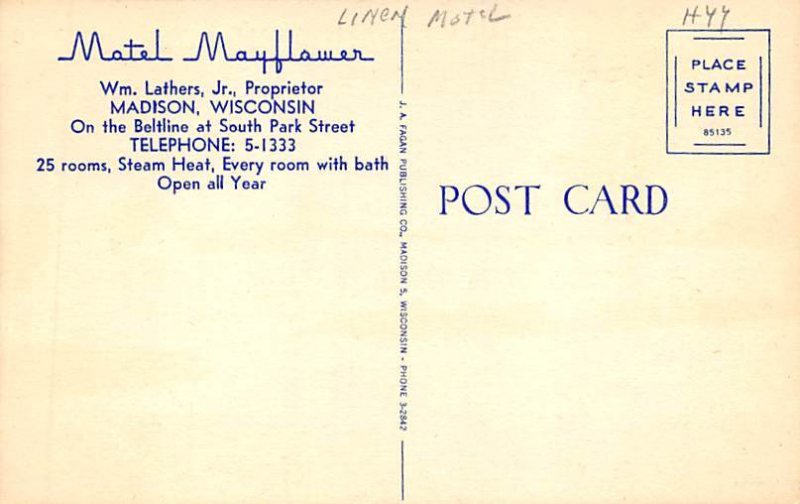 LINEN MOTEL H44
Motel Mayflower
Wm. Lathers, Jr., Proprietor
MADISON, WISCONSIN
On the Beltline at South Park Street
TELEPHONE: 5-1333
25 rooms, Steam Heat, Every room with bath
Open all Year
J. A. FAGAN PUBLISHING CO., MADISON 5, WISCONSIN - PHONE 3-2842
PLACE
STAMP
HERE
85135
POST CARD